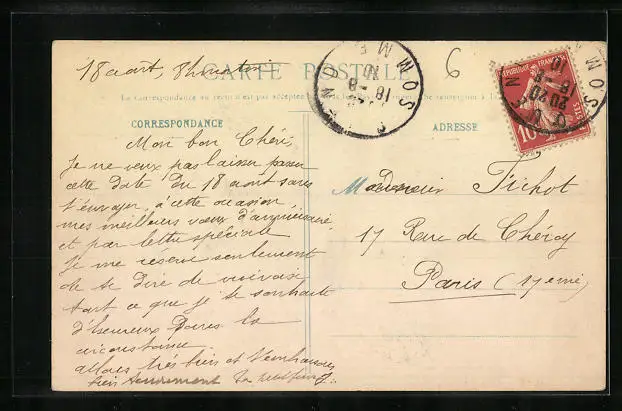 18 aout, 8h matin
CARTE POSTALE
La Correspondance au recto n'est pas acceptée
CORRESPONDANCE
ADRESSE
6
SOMME
18 -8
20
RÉPUBLIQUE FRANÇAISE
10
POSTES
Mon bon Chéri,
Je ne veux pas laisser passer
cette date du 18 aout sans
t'envoyer, à cette occasion,
mes meilleurs voeux d'anniversaire,
et par lettre spéciale
Je me reserve seulement
de te dire de vive voix
tout ce que je te souhaite
d'heureux dans la
circonstance.
allons très bien et t'embrassons
bien tendrement
Monsieur Fichot
17 Rue de Chéroy
Paris (17eme)